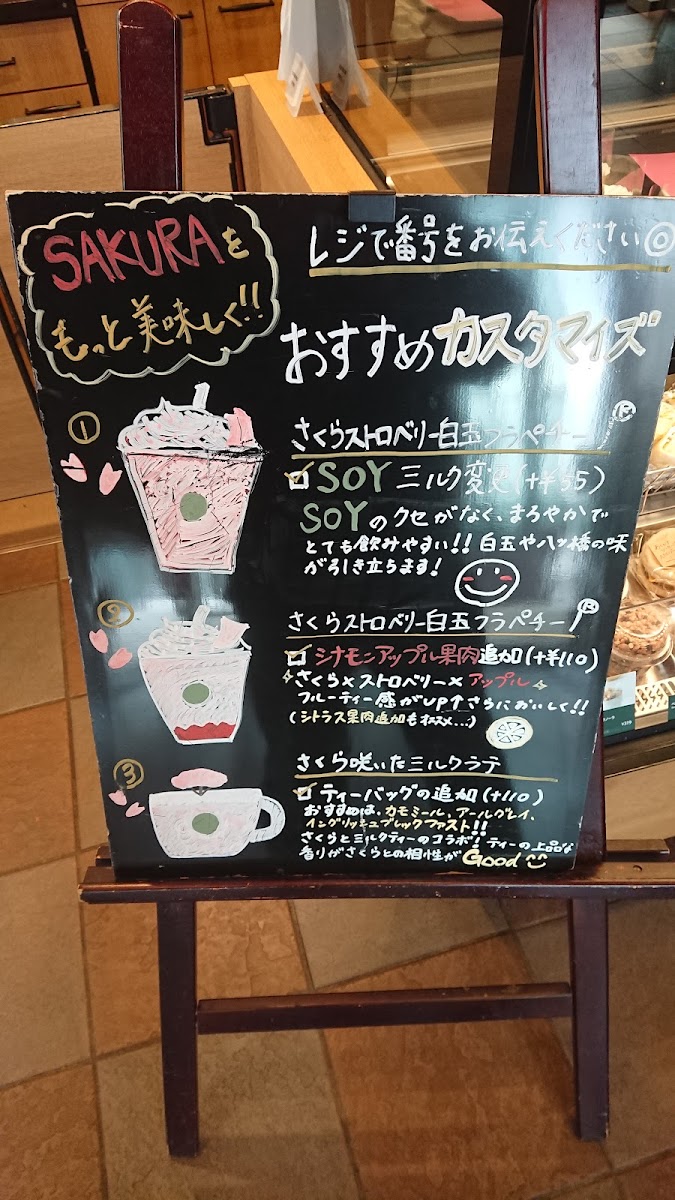 SAKURAを
もっと美味しく!!
レジで番号をお伝えください◎
おすすめカスタマイズ
①
さくらストロベリー白玉フラペチーノ®
☑ SOYミルク変更(+¥55)
SOYのクセがなく、まろやかで
とても飲みやすい!! 白玉や八ッ橋の味
が引き立ちます!
②
さくらストロベリー白玉フラペチーノ®
☑ シナモンアップル果肉追加(+¥110)
さくら×ストロベリー×アップル
フルーティー感がUP↑さらにおいしく!!
(シトラス果肉追加もオススメ...)
③
さくら咲いたミルクラテ
☑ ティーバッグの追加(+110)
おすすめは、カモミール、アールグレイ、
イングリッシュブレックファスト!!
さくらとミルクティーのコラボ! ティーの上品な
香りがさくらとの相性がGood